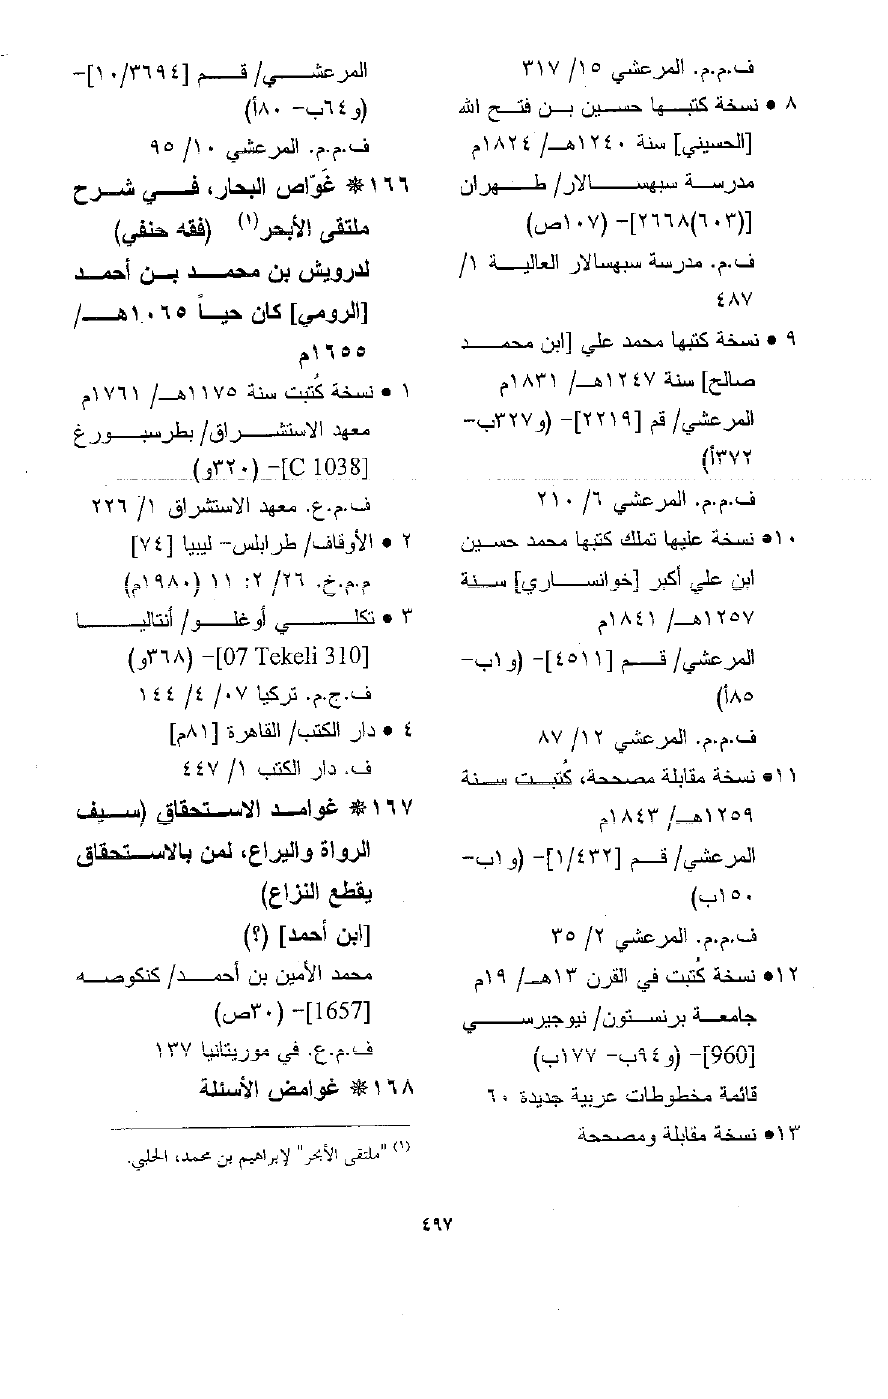 ف.م.م. المرعشي ١٥/ ٣١٧
٨ • نسخة كتبها حسين بن فتح الله
[الحسيني] سنة ١٢٤٠هـ/ ١٨٢٤م
مدرسة سبهسالار/ طهران
[(٦٠٣)٢٦٦٨]- (١٠٧ص)
ف.م. مدرسة سبهسالار العالية ١/
٤٨٧
٩ • نسخة كتبها محمد علي [ابن محمد
صالح] سنة ١٢٤٧هـ/ ١٨٣١م
المرعشي/ قم [٢٢١٩]- (و٣٢٧ب-
٣٧٢أ)
ف.م.م. المرعشي ٦/ ٢١٠
١٠• نسخة عليها تملك كتبها محمد حسين
ابن علي أكبر [خوانساري] سنة
١٢٥٧هـ/ ١٨٤١م
المرعشي/ قم [٤٥١١]- (و١ب-
٨٥أ)
ف.م.م. المرعشي ١٢/ ٨٧
١١• نسخة مقابلة مصححة، كُتبت سنة
١٢٥٩هـ/ ١٨٤٣م
المرعشي/ قم [١/٤٣٢]- (و١ب-
١٥٠ب)
ف.م.م. المرعشي ٢/ ٣٥
١٢• نسخة كُتبت في القرن ١٣هـ/ ١٩م
جامعة برنستون/ نيوجيرسي
[960]- (و٩٤ب- ١٧٧ب)
قائمة مخطوطات عربية جديدة ٦٠
١٣• نسخة مقابلة ومصححة
المرعشي/ قم [١٠/٣٦٩٤]-
(و٦٤ب- ٨٠أ)
ف.م.م. المرعشي ١٠/ ٩٥
١٦٦* غَوّاص البحار، في شرح
ملتقى الأبحر(١) (فقه حنفي)
لدرويش بن محمد بن أحمد
[الرومي] كان حياً ١٠٦٥هـ/
١٦٥٥م
١ • نسخة كُتبت سنة ١١٧٥هـ/ ١٧٦١م
معهد الاستشراق/ بطرسبورغ
[C 1038]- (٣٢٠و)
ف.م.ع. معهد الاستشراق ١/ ٢٢٦
٢ • الأوقاف/ طرابلس- ليبيا [٧٤]
م.م.خ. ٢٦/ ٢: ١١ (١٩٨٠م)
٣ • تكلي أوغلو/ أنتاليا
[07 Tekeli 310]- (٣٦٨و)
ف.ج.م. تركيا ٠٧/ ٤/ ١٤٤
٤ • دار الكتب/ القاهرة [٨١م]
ف. دار الكتب ١/ ٤٤٧
١٦٧* غوامد الاستحقاق (سيف
الرواة واليراع، لمن بالاستحقاق
يقطع النزاع)
[ابن أحمد] (؟)
محمد الأمين بن أحمد/ كنكوصه
[1657]- (٣٠ص)
ف.م.ع. في موريتانيا ١٣٧
١٦٨* غوامض الأسئلة
(١) "ملتقى الأبحر" لإبراهيم بن محمد، الحلبي.
٤٩٧